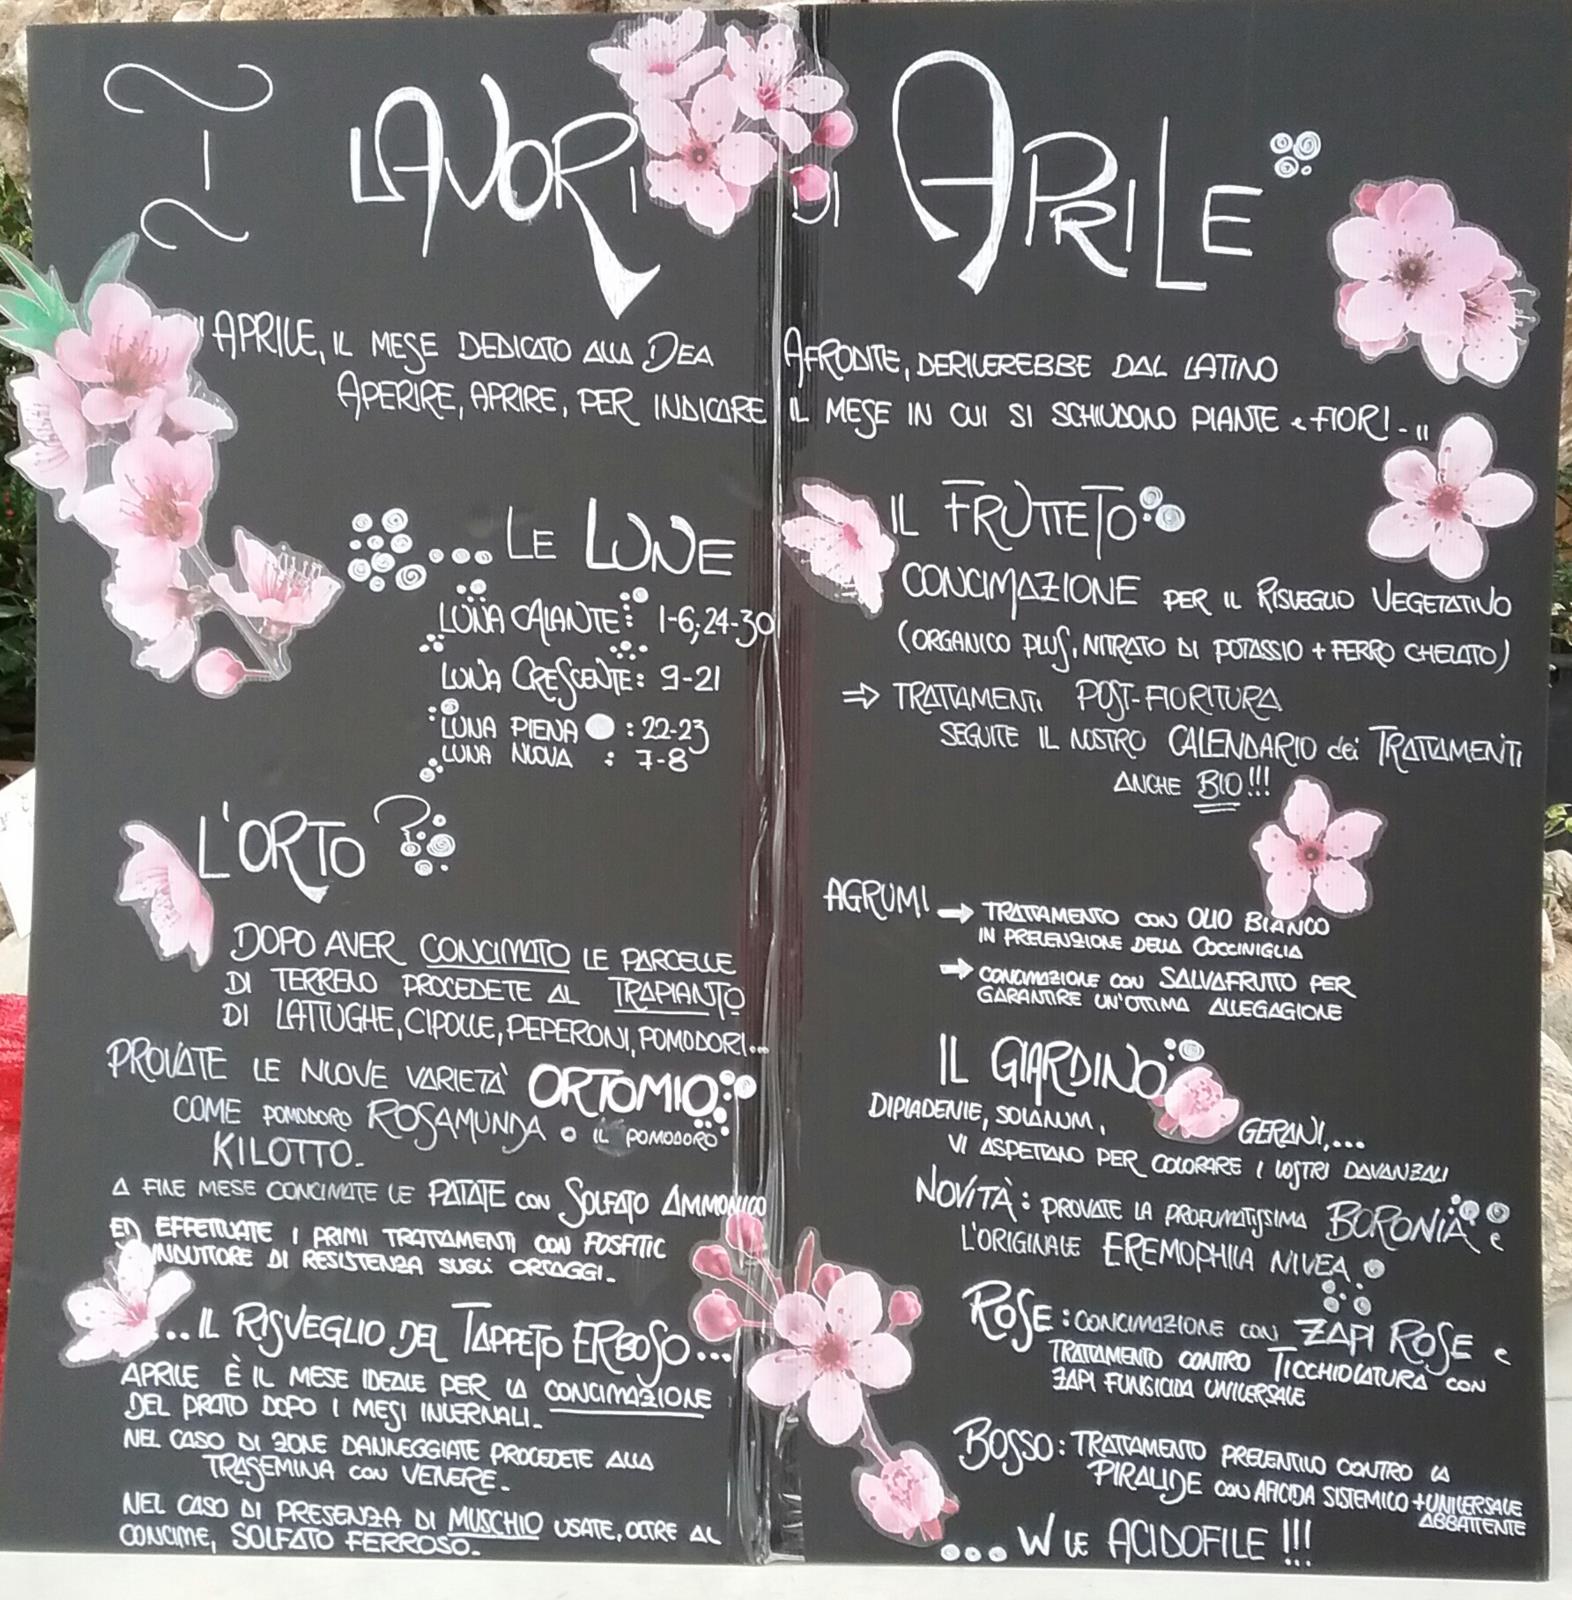 LAVORI DI APRILE
"APRILE, IL MESE DEDICATO ALLA DEA AFRODITE, DERIVEREBBE DAL LATINO
APERIRE, APRIRE, PER INDICARE IL MESE IN CUI SI SCHIUDONO PIANTE e FIORI-"
LE LUNE
LUNA CALANTE: 1-6; 24-30
LUNA CRESCENTE: 9-21
LUNA PIENA : 22-23
LUNA NUOVA : 7-8
L'ORTO
DOPO AVER CONCIMATO LE PARCELLE
DI TERRENO PROCEDETE AL TRAPIANTO
DI LATTUGHE, CIPOLLE, PEPERONI, POMODORI...
PROVATE LE NUOVE VARIETÀ ORTOMIO
COME POMODORO ROSAMUNDA O IL POMODORO
KILOTTO-
A FINE MESE CONCIMATE LE PATATE CON SOLFATO AMMONICO
ED EFFETTUATE I PRIMI TRATTAMENTI CON FOSFITIC
INDUTTORE DI RESISTENZA SUGLI ORTAGGI-
...IL RISVEGLIO DEL TAPPETO ERBOSO...
APRILE È IL MESE IDEALE PER LA CONCIMAZIONE
DEL PRATO DOPO I MESI INVERNALI-
NEL CASO DI ZONE DANNEGGIATE PROCEDETE ALLA
TRASEMINA CON VENERE-
NEL CASO DI PRESENZA DI MUSCHIO USATE, OLTRE AL
CONCIME, SOLFATO FERROSO-
IL FRUTTETO
CONCIMAZIONE PER IL RISVEGLIO VEGETATIVO
(ORGANICO PLUS, NITRATO DI POTASSIO + FERRO CHELATO)
⇒ TRATTAMENTI POST-FIORITURA
SEGUITE IL NOSTRO CALENDARIO dei TRATTAMENTI
ANCHE BIO!!!
AGRUMI → TRATTAMENTO CON OLIO BIANCO
IN PREVENZIONE DELLA COCCINIGLIA
→ CONCIMAZIONE CON SALVAFRUTTO PER
GARANTIRE UN'OTTIMA ALLEGAGIONE
IL GIARDINO
DIPLADENIE, SOLANUM, GERANI,...
VI ASPETTANO PER COLORARE I VOSTRI DAVANZALI
NOVITÀ: PROVATE LA PROFUMATISSIMA BORONIA e
L'ORIGINALE EREMOPHILA NIVEA
ROSE: CONCIMAZIONE CON ZAPI ROSE e
TRATTAMENTO CONTRO TICCHIOLATURA CON
ZAPI FUNGICIDA UNIVERSALE
BOSSO: TRATTAMENTO PREVENTIVO CONTRO LA
PIRALIDE CON AFICIDA SISTEMICO + UNIVERSALE
ABBATTENTE
...W LE ACIDOFILE!!!